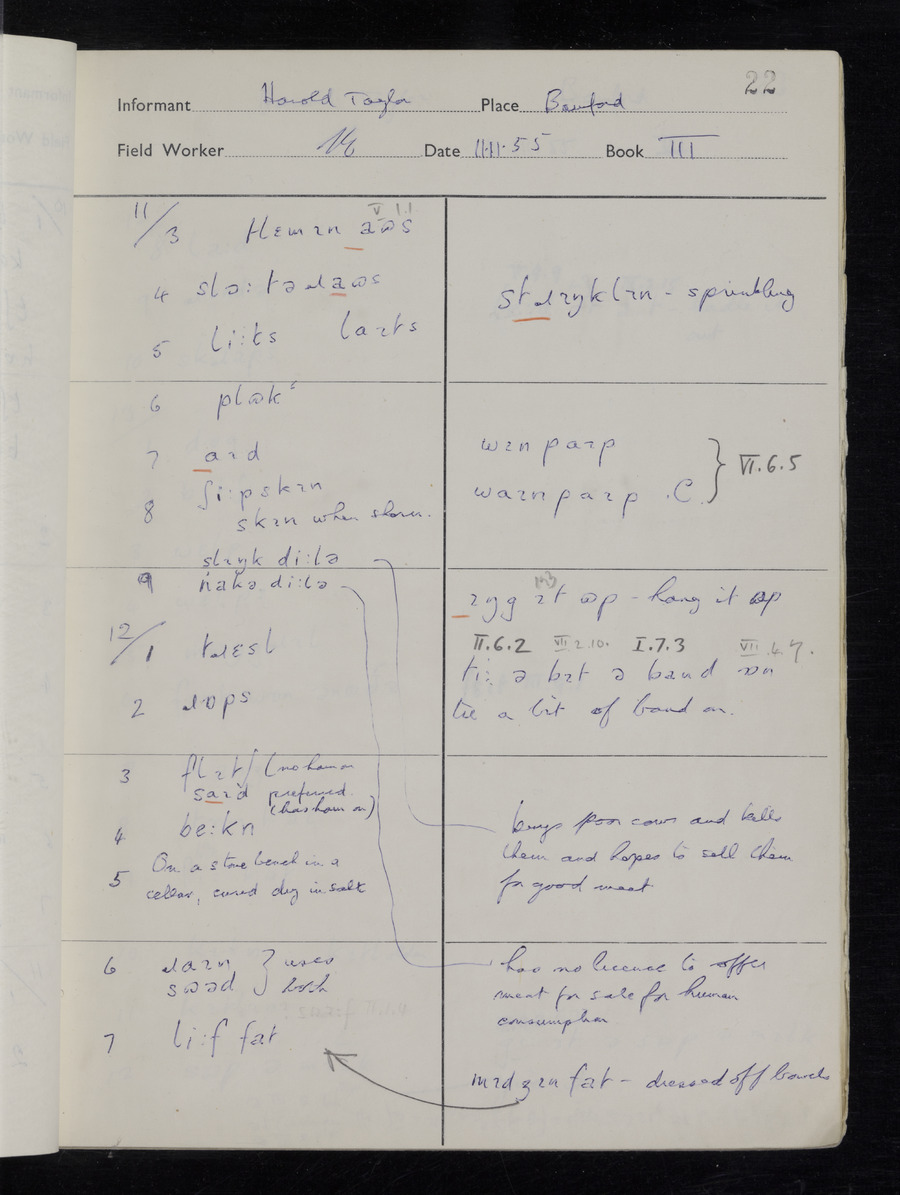 22
Informant Harold Taylor Place Bamford
Field Worker Date 11.11.55 Book III
11/3 tlɛmɪn aʊs V 1.1
4 slɔ:təɹaʊs
5 li:ts laɪts
stɹɪŋklɪn - sprinkling
6 plʊk
7 aɪd
8 ʃi:pskɪn
skɪn when shorn.
wɪnpaɪp
waɪnpaɪp .C. } VI.6.5
slɪŋk di:lə
9 nakə di:lə
12/1 tɹɛsl
2 ɹɒps
ɪŋg ɪt ʊp - hang it up
II.6.2 VII.2.10. I.7.3 VII.4.7.
ti: ə bɪt ə band ɒn
tie a bit of band on.
3 flɪtʃ (no ham on
saɪd preferred.
(has ham on)
4 be:kn
5 On a stone bench in a
cellar, cured dry in salt
buys poor cows and kills
them and hopes to sell them
for good meat
6 ɹaɪn } uses
swəd both
7 li:f fat
has no licence to offer
meat for sale for human
consumption
mɪdʒɪn fat - dressed off bowels